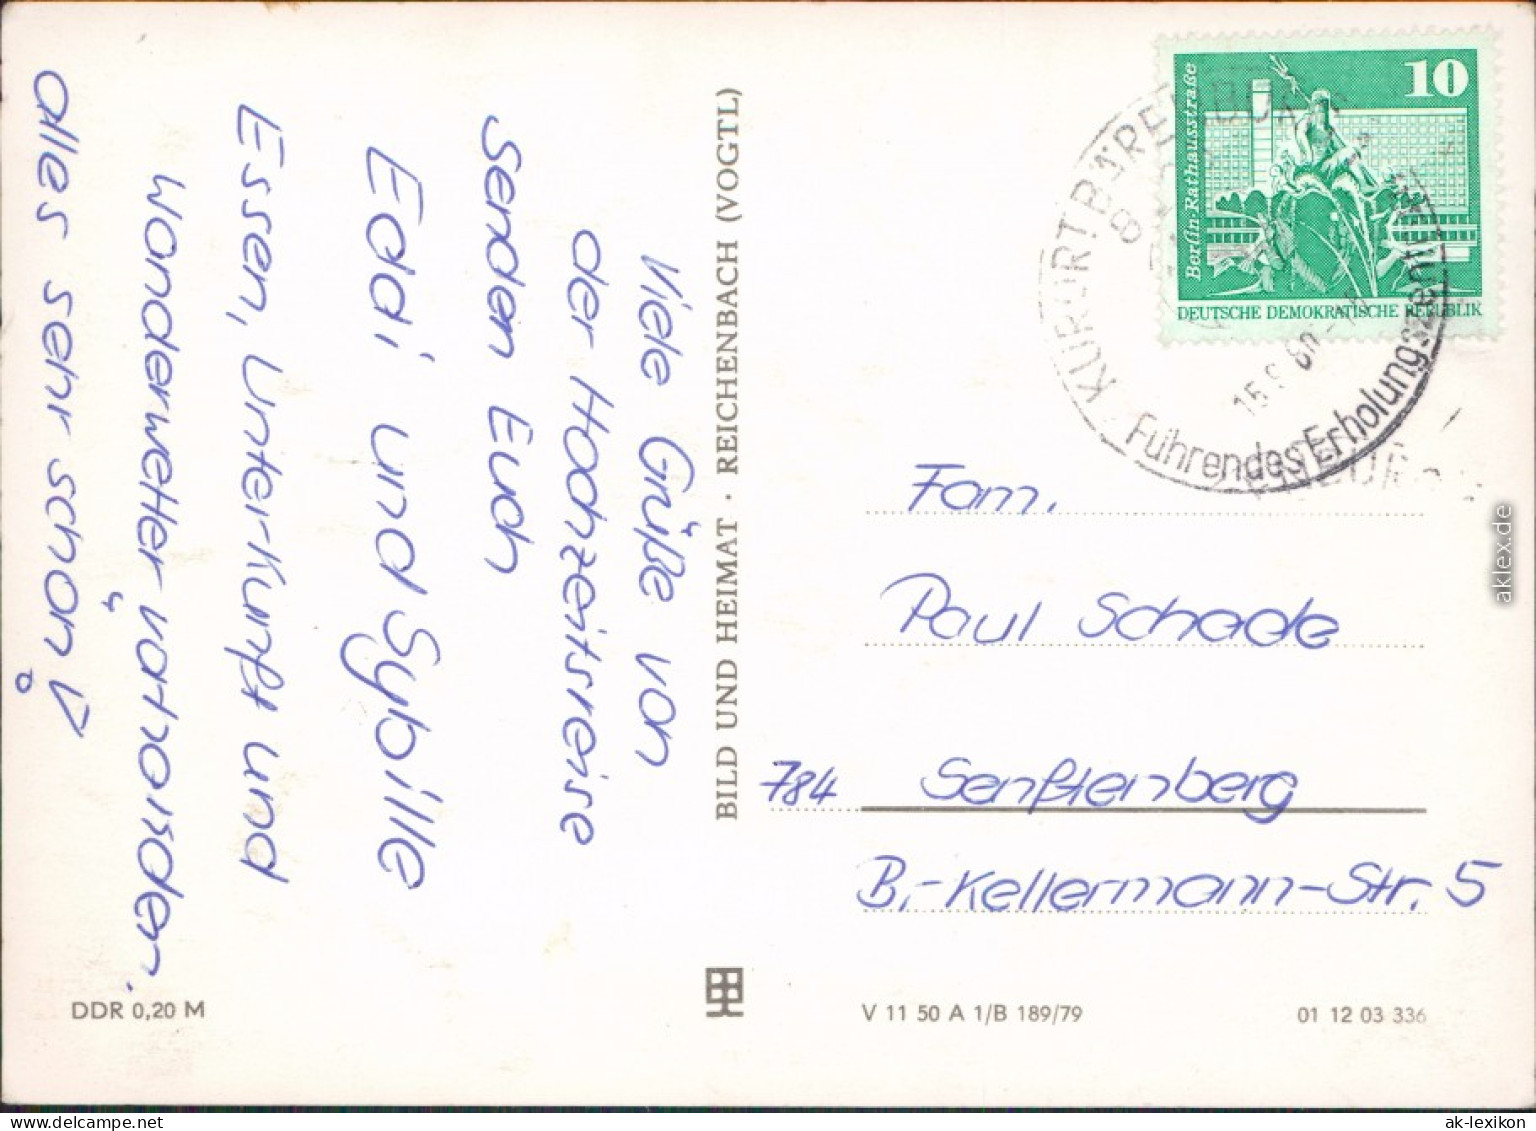 Viele Grüße von
der Hochzeitsreise
senden Euch
Eddi und Sybille
Essen, Unterkunft und
Wanderwetter vorhanden.
alles sehr schön!
BILD UND HEIMAT · REICHENBACH (VOGTL)
10
Berlin·Rathausstraße
DEUTSCHE DEMOKRATISCHE REPUBLIK
KURORT BÄRENBURG
8
15.9.80
Führendes Erholungszentrum
Fam.
Paul Schade
784 Senftenberg
B.-Kellermann-Str. 5
DDR 0,20 M
V 11 50 A 1/B 189/79
01 12 03 336
aklex.de
ak-lexikon